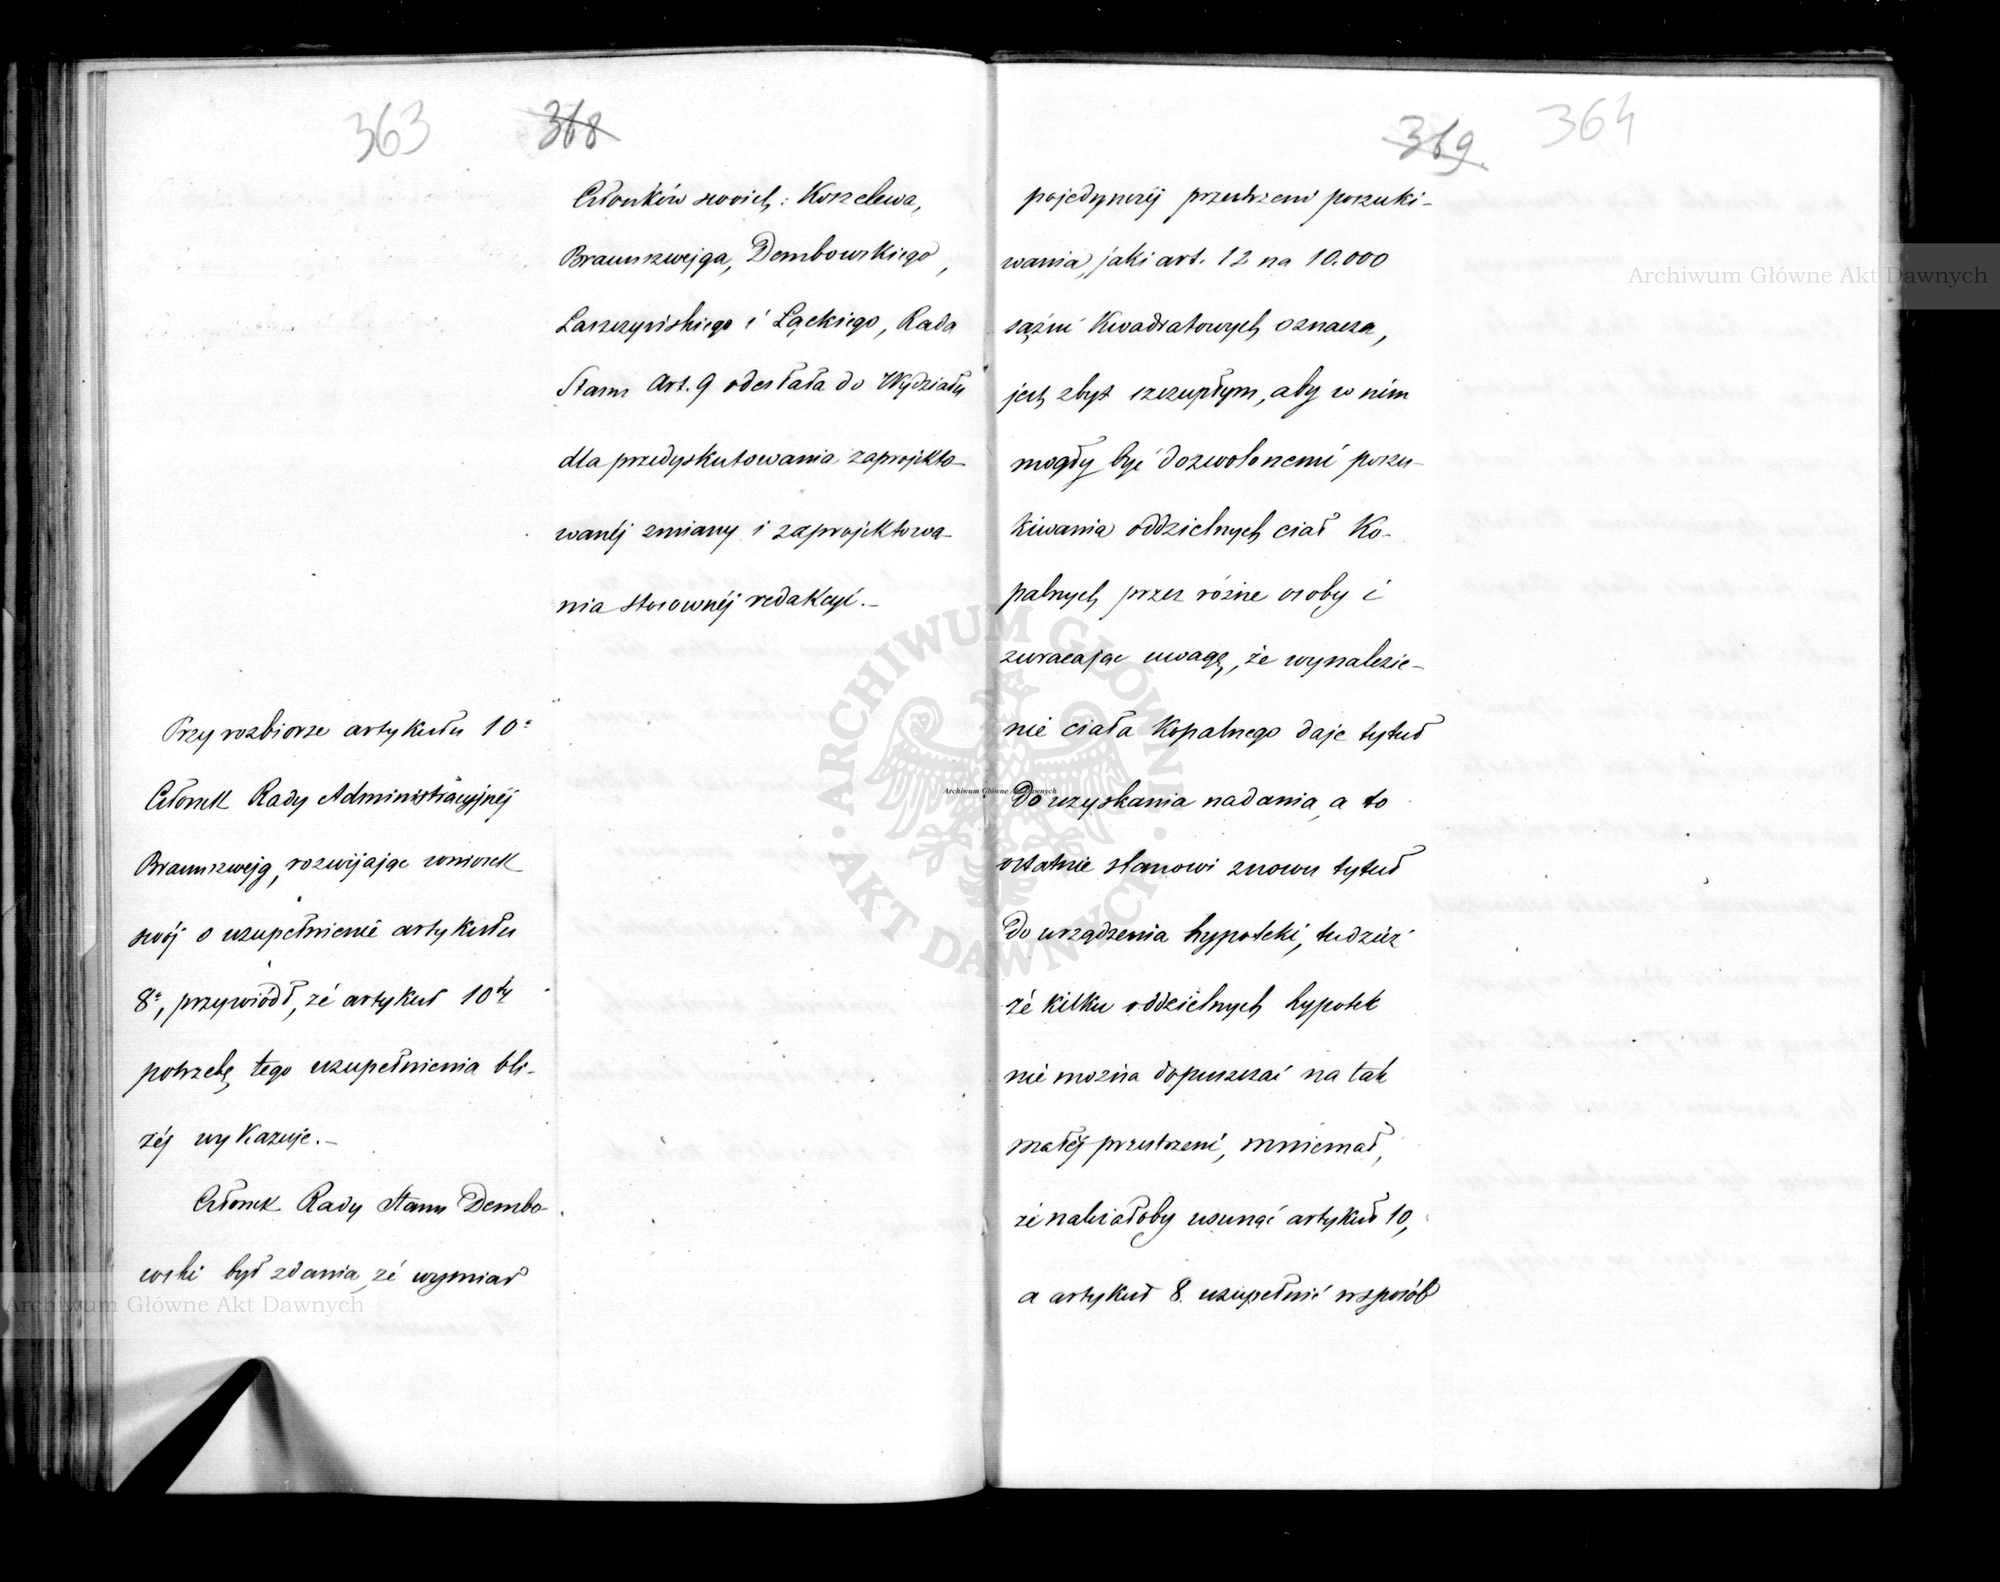 363
368
Członków swoich: Koszelewa,
Braunszwejga, Dembowskiego,
Laszczyńskiego i Łąckiego, Rada
Stanu Art. 9 odesłała do Wydziału
dla przedyskutowania zaprojekto-
wanéj zmiany i zaprojektowa-
nia stosownéj redakcyi.–
Przy rozbiorze artykułu 10º
Członek Rady Administracyjnéj
Braunszwejg, rozwijając wniosek
swój o uzupełnienie artykułu
8º, przywiódł, że artykuł 10ty
potrzebę tego uzupełnienia bli-
żéj wykazuje.–
Członek Rady Stanu Dembo-
wski był zdania, że wymiar
369
364
pojedynczéj przestrzeni poszuki-
wania, jaki art. 12 na 10.000
sążni kwadratowych oznacza,
jest zbyt szczupłym, aby w nim
mogły być dozwolonemi poszu-
kiwania oddzielnych ciał ko-
palnych przez różne osoby i
zwracając uwagę, że wynalezie-
nie ciała kopalnego daje tytuł
do uzyskania nadania, a to
ostatnie stanowi znowu tytuł
do urządzenia hypoteki, tudzież
że kilku oddzielnych hypotek
nie można dopuszczać na tak
małéj przestrzeni, mniemał,
że należałoby usunąć artykuł 10,
a artykuł 8 uzupełnić w sposób
Archiwum Główne Akt Dawnych
Archiwum Główne Akt Dawnych
Archiwum Główne Akt Dawnych
ARCHIWUM GŁÓWNE AKT DAWNYCH